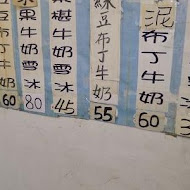 泥布丁牛奶 60
綠豆布丁牛奶 55
椹牛奶雪冰 45
果牛奶雪冰 80
豆布丁牛奶 60